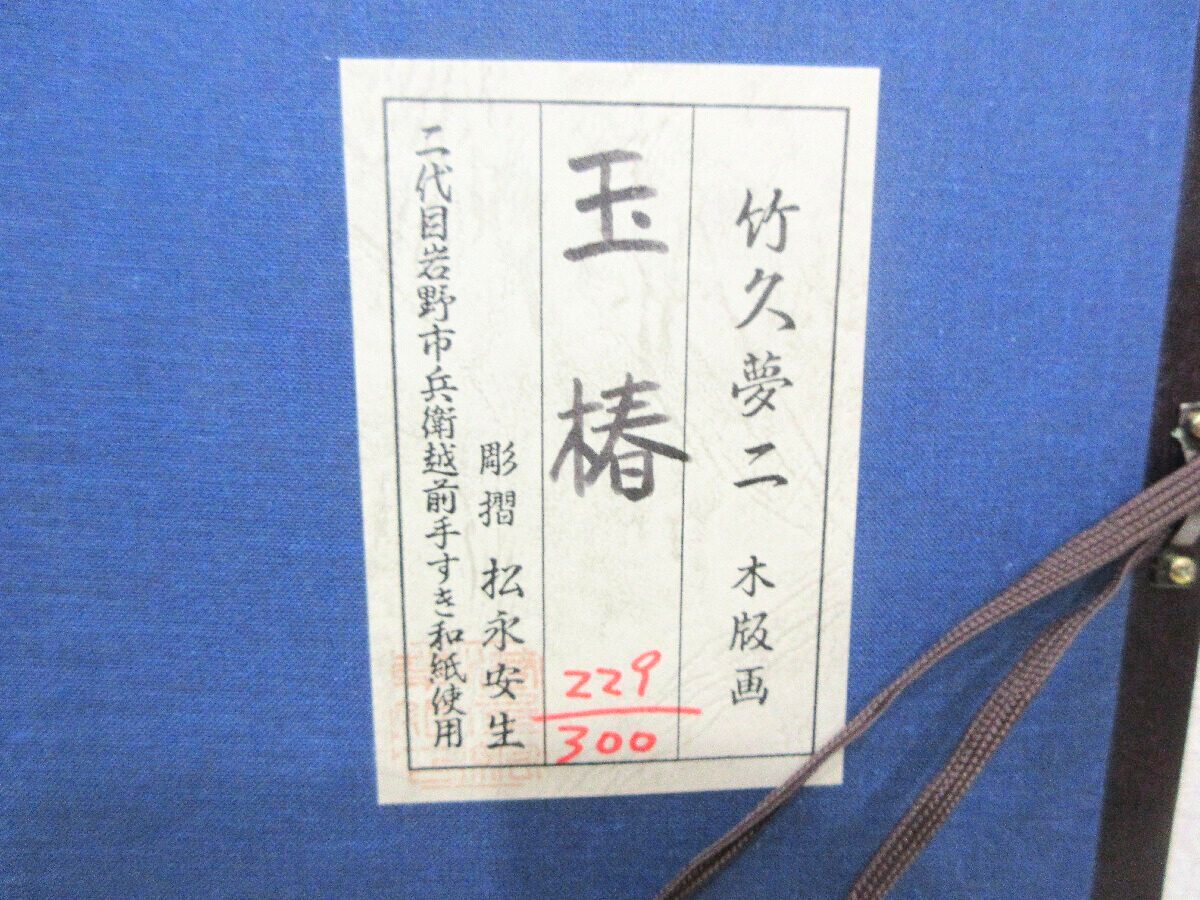 竹久夢二 木版画
玉椿
229
300
彫摺 松永安生
二代目岩野市兵衛越前手すき和紙使用